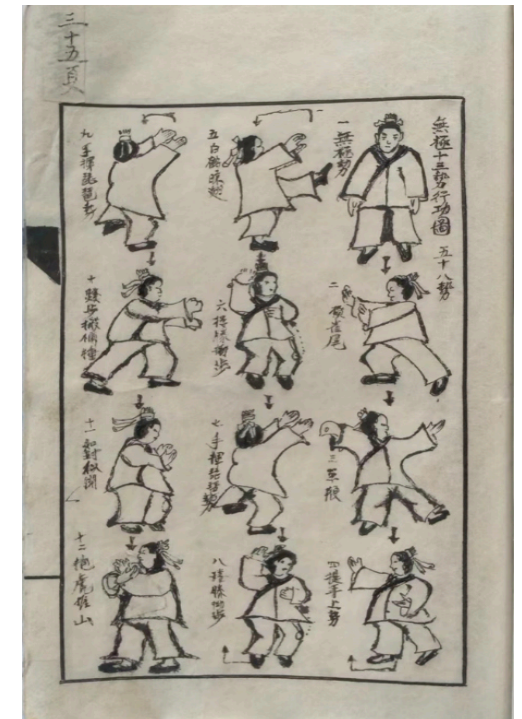 三十五頁
無極十三势行功圖 五十八势
一 無極势
二 攬雀尾
三 单鞭
四 提手上势
五 白鶴凉翅
六 摟膝拗步
七 手揮琵琶势
八 摟膝拗步
九 手揮琵琶势
十 進步搬攔捶
十一 如封似閉
十二 抱虎推山